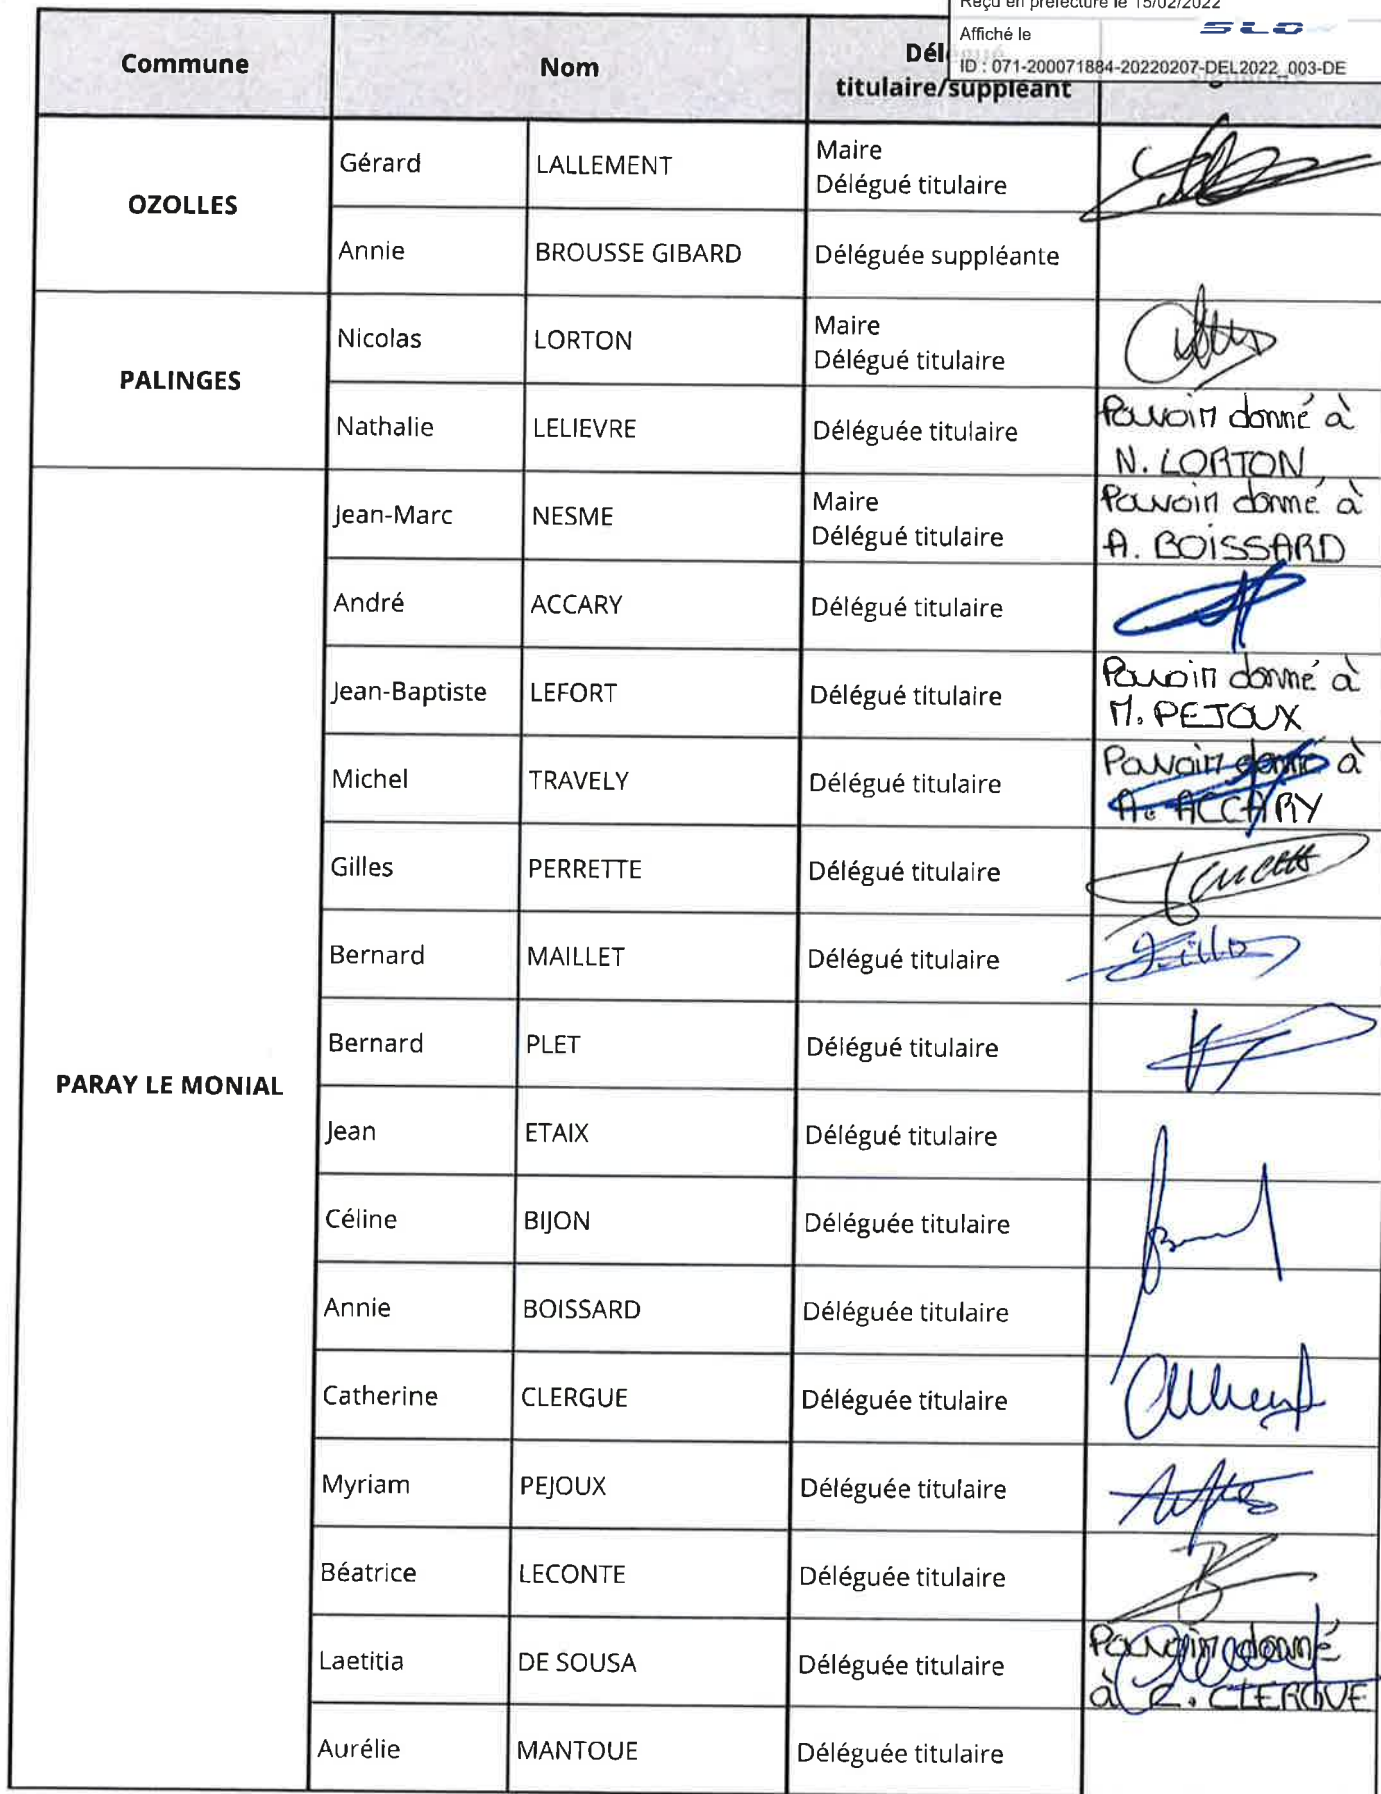 Reçu en préfecture le 15/02/2022
Affiché le
SLO
ID : 071-200071884-20220207-DEL2022_003-DE
Commune Nom
titulaire/suppléant
OZOLLES
Gérard LALLEMENT Maire
Délégué titulaire
Annie BROUSSE GIBARD Déléguée suppléante
PALINGES
Nicolas LORTON Maire
Délégué titulaire
Nathalie LELIEVRE Déléguée titulaire Pouvoir donné à
N. LORTON
PARAY LE MONIAL
Jean-Marc NESME Maire
Délégué titulaire Pouvoir donné à
A. BOISSARD
André ACCARY Délégué titulaire
Jean-Baptiste LEFORT Délégué titulaire Pouvoir donné à
M. PEJOUX
Michel TRAVELY Délégué titulaire Pouvoir donné à
A. ACCARY
Gilles PERRETTE Délégué titulaire
Bernard MAILLET Délégué titulaire
Bernard PLET Délégué titulaire
Jean ETAIX Délégué titulaire
Céline BIJON Déléguée titulaire
Annie BOISSARD Déléguée titulaire
Catherine CLERGUE Déléguée titulaire
Myriam PEJOUX Déléguée titulaire
Béatrice LECONTE Déléguée titulaire
Laetitia DE SOUSA Déléguée titulaire Pouvoir donné
à C. CLERGUE
Aurélie MANTOUE Déléguée titulaire